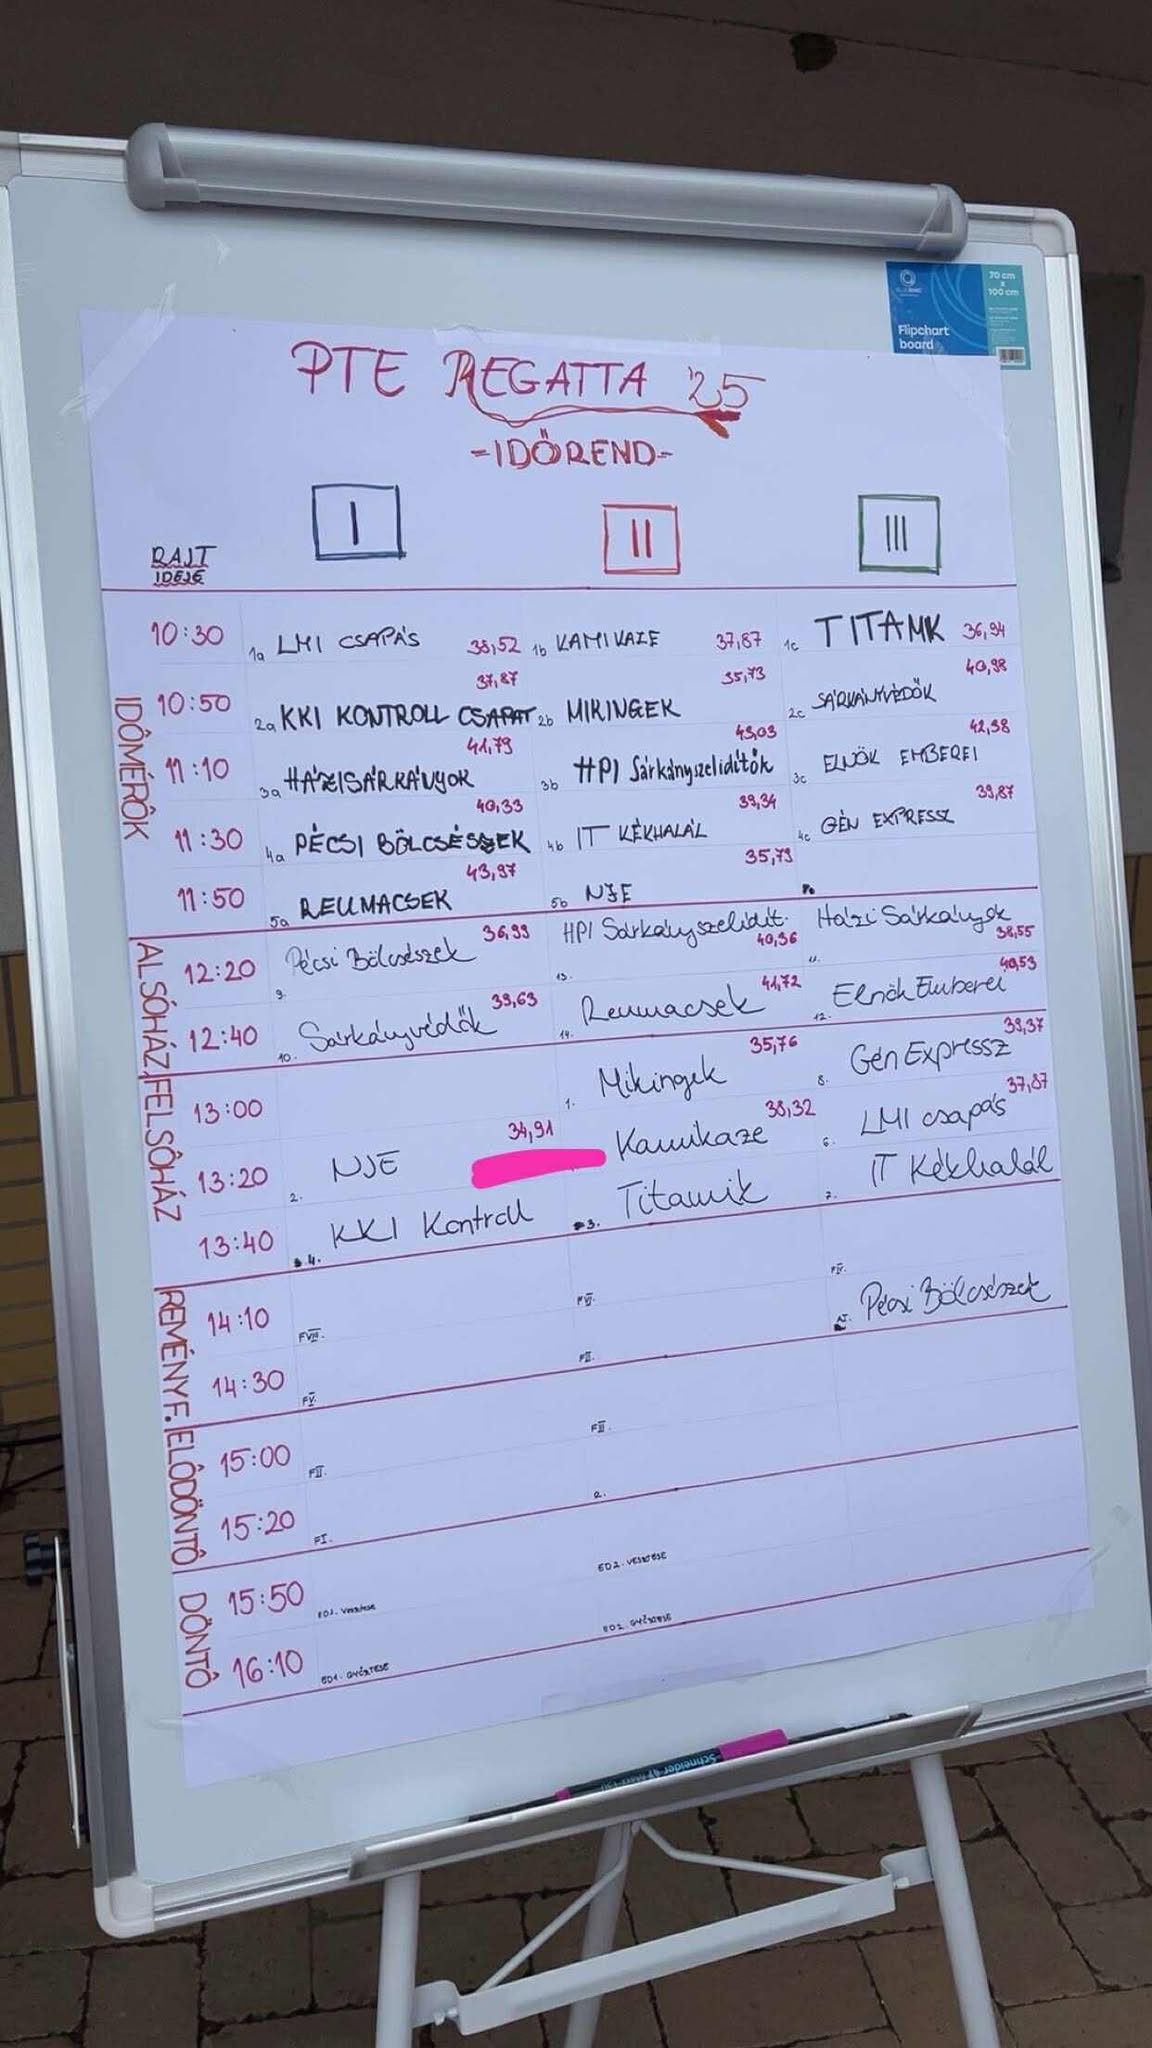 70 cm
x
100 cm
Flipchart
board
PTE REGATTA '25
-IDŐREND-
I II III
RAJT
IDEJE
IDŐMÉRŐK
10:30 1a LMI CSAPÁS 38,52 1b KAMIKAZE 37,87 1c TITAMK 36,94
10:50 2a KKI KONTROLL CSAPAT 37,87 2b MIKINGEK 35,73 2c SÁRKÁNYVÉDŐK 40,98
11:10 3a HÁZISÁRKÁNYOK 41,79 3b HPI Sárkányszelidítők 43,03 3c ELNÖK EMBEREI 42,38
11:30 4a PÉCSI BÖLCSÉSZEK 40,33 4b IT KÉKHALÁL 39,34 4c GÉN EXPRESSZ 39,87
11:50 5a REUMACSEK 43,97 5b NJE 35,79
ALSÓHÁZ
12:20 9. Pécsi Bölcsészek 36,99 13. HPI Sárkányszelidít. 40,36 11. Házi Sárkányok 38,55
12:40 10. Sárkányvédők 39,63 14. Reumacsek 41,72 12. Elnök Emberei 40,53
FELSŐHÁZ
13:00 1. Mikingek 35,76 8. Gén Expressz 39,37
13:20 2. NJE 34,91 Kamikaze 38,32 6. LMI csapás 37,87
13:40 4. KKI Kontroll 3. Titamik 7. IT Kékhalál
REMÉNYF.
14:10 FVIII. FVI. FIV.
14:30 FV. FII. AI. Pécsi Bölcsészek
ELŐDÖNTŐ
15:00 FII. FIII.
15:20 FI. 2.
DÖNTŐ
15:50 ED1. VESZTESE ED2. VESZTESE
16:10 ED1. GYŐZTESE ED2. GYŐZTESE
Schneider